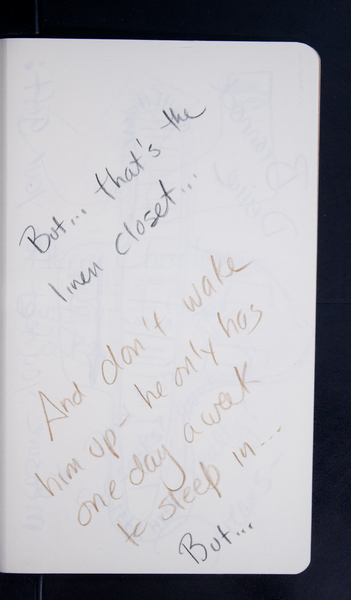 But... that's the
linen closet...
And don't wake
him up- he only has
one day a week
to sleep in...
But...